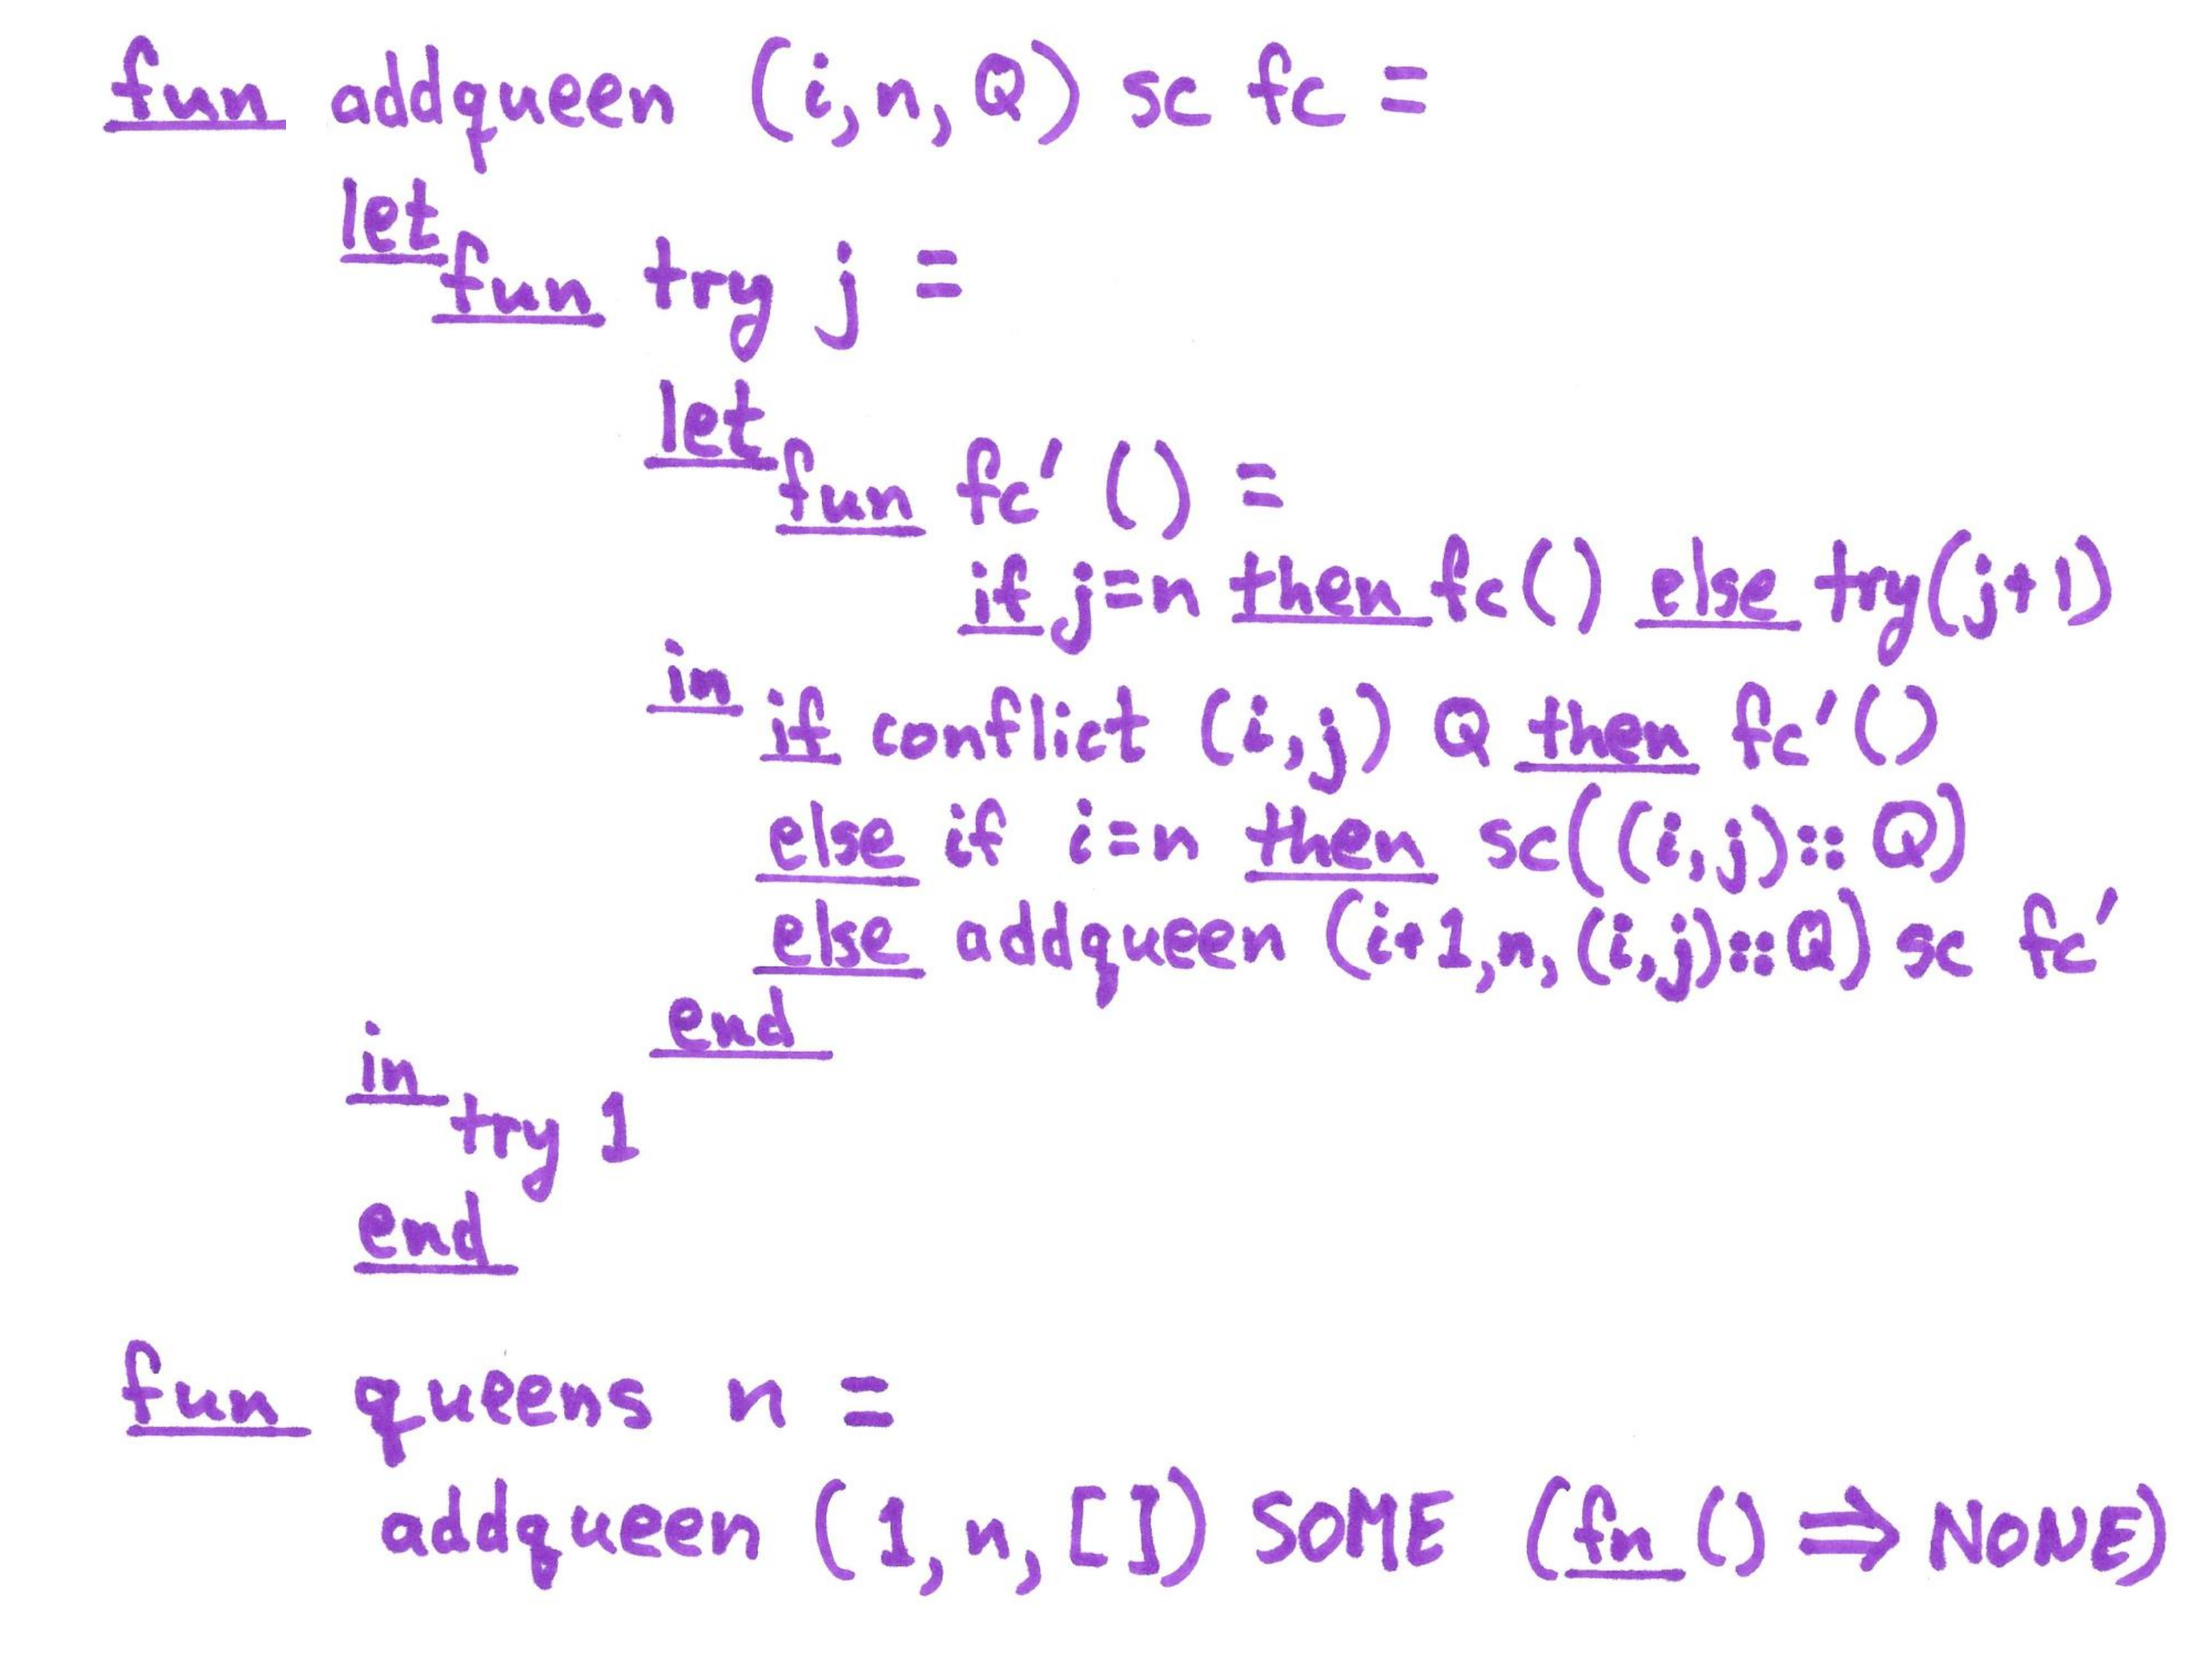 fun addqueen (i,n,Q) sc fc =
let
fun try j =
let
fun fc' () =
if j=n then fc() else try(j+1)
in
if conflict (i,j) Q then fc'()
else if i=n then sc((i,j)::Q)
else addqueen (i+1,n,(i,j)::Q) sc fc'
end
in
try 1
end
fun queens n =
addqueen (1,n,[]) SOME (fn () ⇒ NONE)